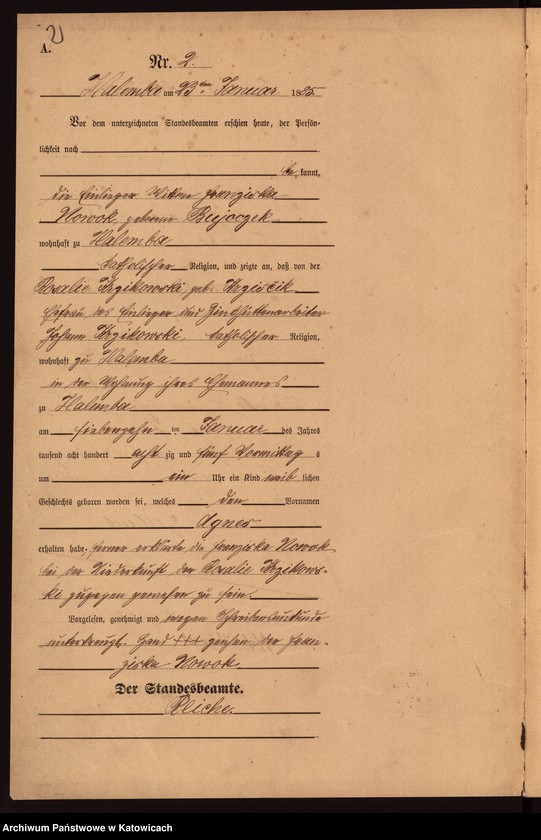 2
A.
Nr. 2.
Halemba am 23ten Januar 1885
Vor dem unterzeichneten Standesbeamten erschien heute, der Persön-
lichkeit nach
be kannt,
die Einlieger Wittwe Franziska
Nowok, geborene
wohnhaft zu Halemba
katholischer Religion, und zeigte an, daß von der
Rosalie Krzikowski geb.
Ehefrau des Einlieger und Zinkhüttenarbeiter
Johann Krzikowski, katholischer Religion,
wohnhaft zu Halemba
in der Wohnung ihres Ehemannes
zu Halemba
am siebenzehn ten Januar des Jahres
tausend acht hundert acht zig und fünf Vormittag s
um ein Uhr ein Kind weib lichen
Geschlechts geboren worden sei, welches den Vornamen
Agnes
erhalten habe; ferner erklärte die Franziska Nowok
bei der Niederkunft der Rosalie Krzikows-
ki zugegen gewesen zu sein.
Vorgelesen, genehmigt und wegen Schreibensunkunde
unterkreuzt. Hand +++ zeichen der Fran-
ziska Nowok.
Der Standesbeamte.
Reiche.
Archiwum Państwowe w Katowicach